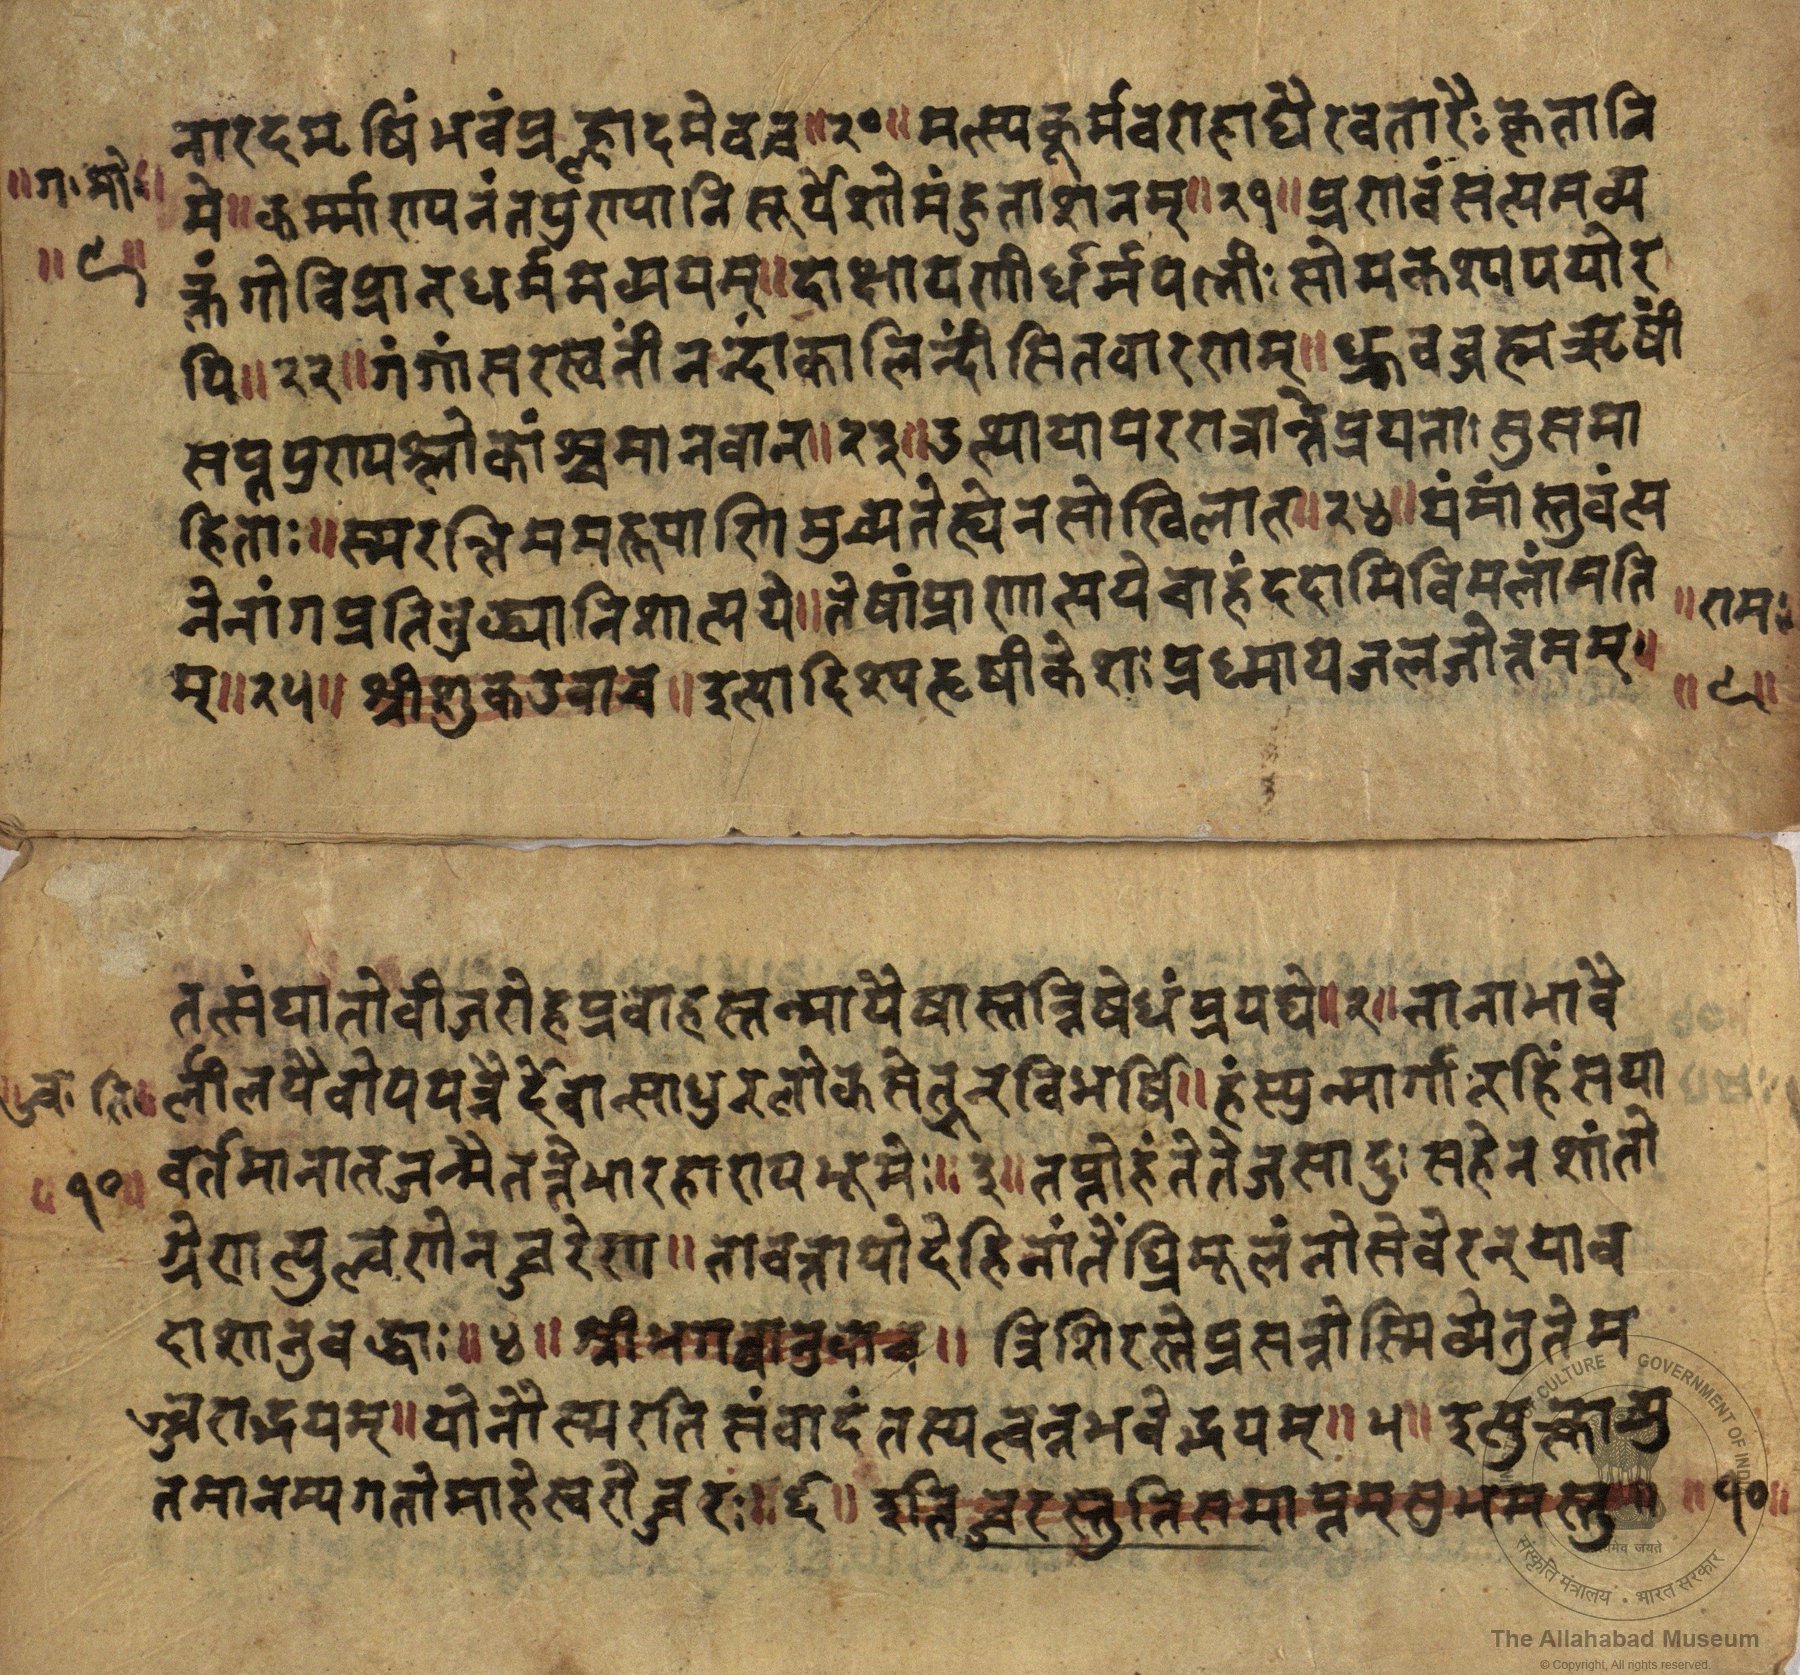 नारदमृषिंभवंप्रह्लादमेवच॥२०॥मत्स्यकूर्मवराहाद्यैरवतारैःकृतानि
॥ग॰मो॰॥
मे॥कर्म्माण्यनंतपुंण्यानिसूर्यंशोमंहुताशनम्॥२१॥प्रणवंसत्यमव्य
॥९॥
क्तंगोविप्रान्धर्ममव्ययम्॥दाक्षायणीर्धर्मपत्नीःसोमकश्यपयोर
पि॥२२॥गंगांसरस्वंतींनन्दांकालिन्दींसितवारणाम्॥ध्रुवब्रह्मऋषीं
सप्तपुण्यश्लोकांश्चमानवान॥२३॥उत्थायापररात्रान्तेप्रयताःसुसमा
हिताः॥स्मरन्तिममरूपाणिमुच्यतेह्येनसोखिलात॥२४॥येमांस्तुवंत्य
नेनांगप्रतिबुध्यानिशात्यये॥तेषांप्राणात्ययेचाहंददामिविमलांमति
॥रामः॥
म्॥२५॥श्रीशुकउवाच॥इत्यादिश्यहृषीकेशःप्रध्मायजलजोत्तमम्॥
॥९॥
तत्संघातोवीजरोहप्रवाहस्तन्मायैषास्तन्निषेधंप्रपद्ये॥२॥नानाभावै
र्लीलयैवोपपन्नैर्देवान्साधुन्लोकसेतून्विभर्षि॥हंस्युन्मार्गान्हिंसया
॥१०॥
वर्तमानातजन्मैतत्तेभारहाराय‌भूमेः॥३॥तप्तोहंतेतेजसादुःसहेनशांतो
ग्रेणात्युल्वणेनज्वरेणा॥तावत्तापोदेहिनांतेंघ्रिमूलंनोसेवेरन्‌याव
दाशानुबद्धाः॥४॥श्रीभगवानुवाच॥त्रिशिरस्तेप्रसन्नोस्मिव्येतुतेम
ज्वराद्भयम्॥योनौस्मरतिसंवादंतस्यत्वन्नभवेद्भयम्॥५॥इत्युक्ताच्यु
तमानम्यगतोमाहेस्वरोज्वरः॥६॥इतिज्वरस्तुतिसमाप्तम्सुभमस्तु॥
॥१०॥
संस्कृति मंत्रालय • भारत सरकार
CULTURE GOVERNMENT OF INDIA
The Allahabad Museum
© Copyright, All rights reserved.